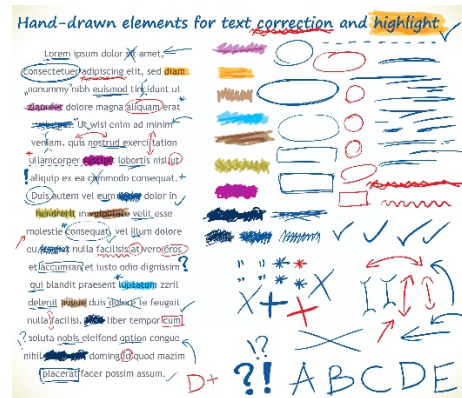 Hand-drawn elements for text correction and highlight
Lorem ipsum dolor sit amet,
consectetuer adipiscing elit, sed diam
nonummy nibh euismod tincidunt ut
dolore magna aliquam erat
Ut wisi enim ad minim
veniam. quis nostrud exerci tation
ullamcorper suscipit lobortis nisl ut
aliquip ex ea commodo consequat.
! Duis autem vel eum dolor in
hendrerit in vulputate velit esse
molestie consequat, vel illum dolore
eu nulla facilisis at vero eros
et accumsan et iusto odio dignissim ?
qui blandit praesent luptatum zzril
delenit augue duis dolore te feugait
nulla facilisi. liber tempor cum
!? soluta nobis eleifend option congue
nihil doming id quod mazim
placerat facer possim assum.
D+
!?
?! A B C D E